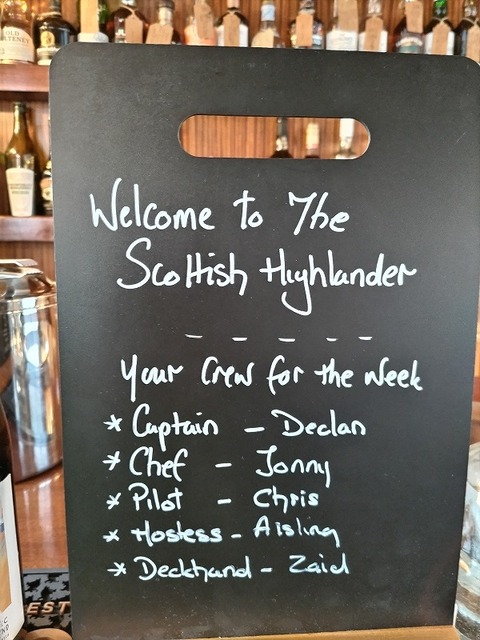 Welcome to The
Scottish Highlander
- - - - -
Your Crew for the Week
* Captain - Declan
* Chef - Jonny
* Pilot - Chris
* Hostess - Aisling
* Deckhand - Zaid
EST